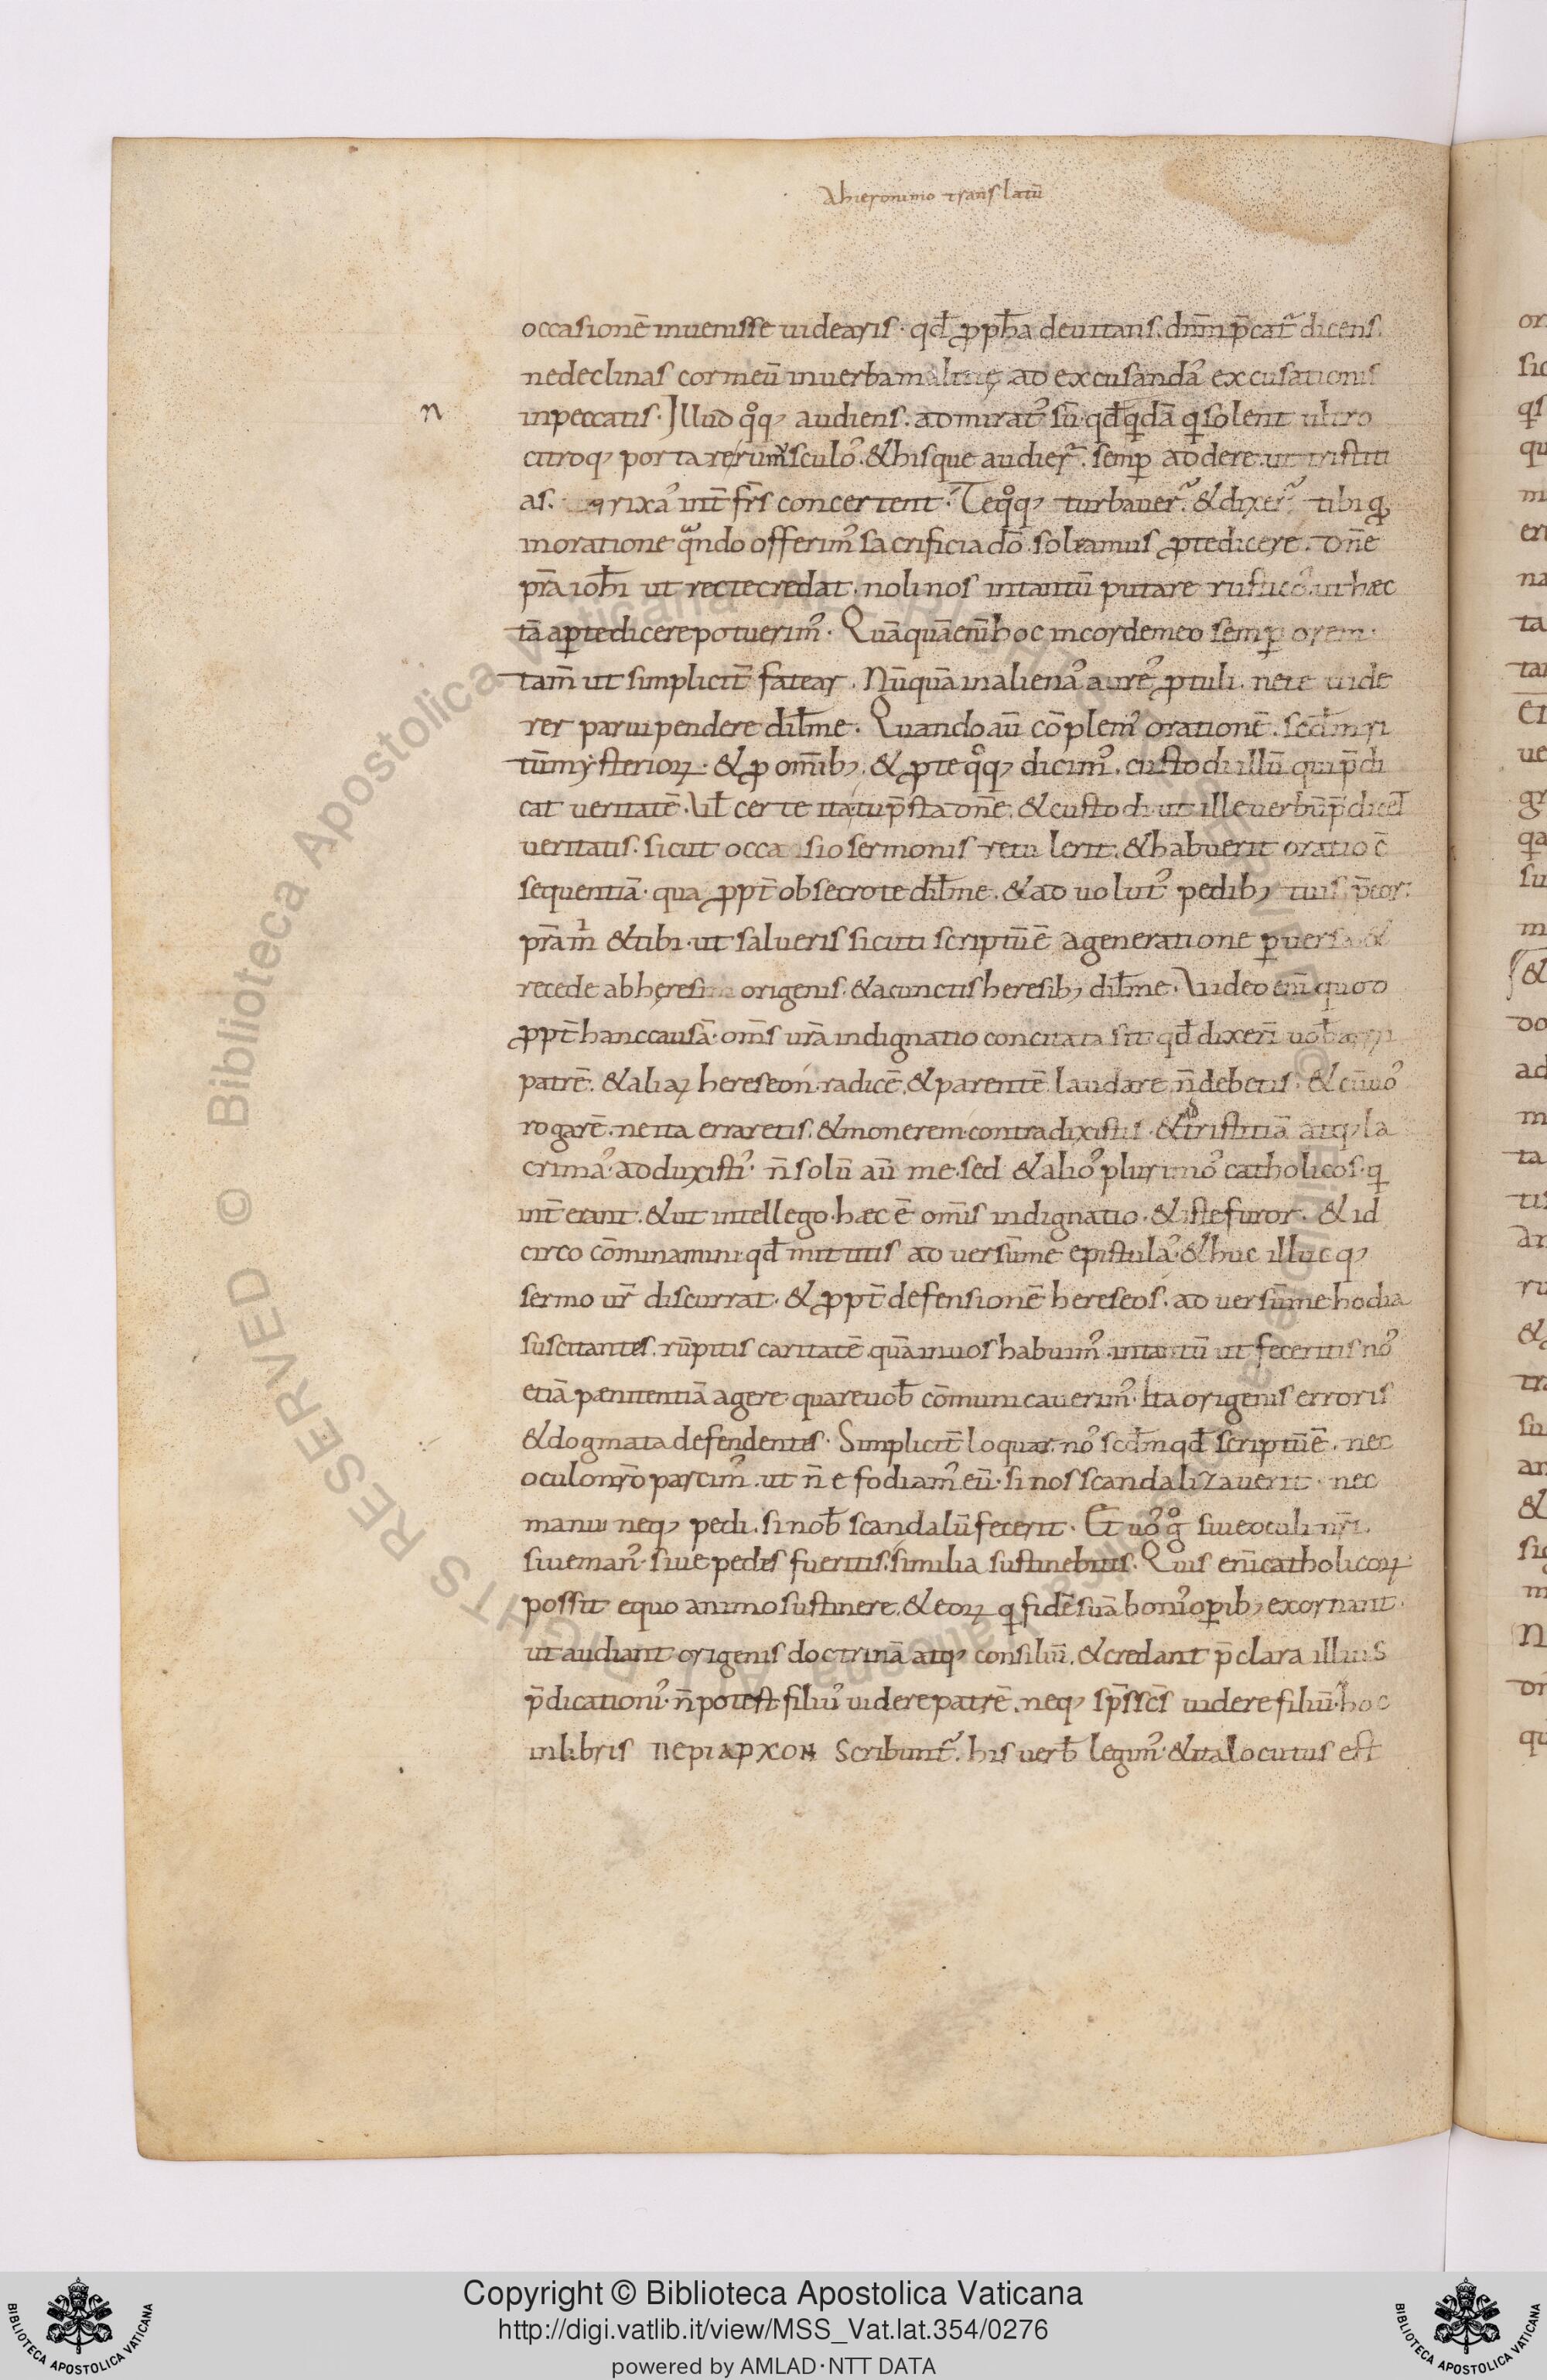 Ahieronimo translatū
occasionē inuenisse uidearis· qđ ꝓpħa deuitans. dn̄m p̄cat᷑ dicens.
nedeclinas cor meū inuerba malitię. ad excusandaˀ excusationis
n
inpeccatis· Illud qͦqꝫ audiens. admiratˀ sū· qđ qͥdā qͥ solent ultro
citroqꝫ portare rumusculoˀ. &hisque audier᷑. semꝑ addere. ut tristiti
as. rixaˀ int̄ fr̄s concertent· Teqͦqꝫ turbauer᷑. &dixer᷑. tibi qͥ
inoratione qͣndo offerimˀ sacrificia dō. soleamus ꝓtedicere. dn̄e
pr̄a ioħi ut rectecredat. nolinos intantū putare rusticoˀ. ut hæc
tā aꝑtedicere potuerimˀ. Quāquā enī hoc incordemeo semꝑ orem·
tam̄ ut simplicit̄ fatear. Nūquā inalienaˀ aureˀ ꝓtuli. nete uide
rer paruipendere dilme. Quando aū cōplemˀ orationē. scd̄m ri
tū mẏsterioꝝ· &ꝓ omībꝫ. &ꝓte qͦqꝫ dicimˀ. custodi illū qui p̄di
cat ueritatē. Vł certe ita· tu p̄sta dn̄e. &custodi. ut ille uerbū p̄dicet
ueritatis. sicut occasio sermonis retulerit. &habuerit oratio c̄
sequentiā· qua ꝓpt̄ obsecrote dilme. &aduolutˀ pedibꝫ tuis p̄cor:
pr̄a mͥ &tibi· ut salueris sicuti scriptū ē ageneratione ꝑuersa. &
recede abheresi origenis. &acunctis heresibꝫ dilme. Video enī quod
ꝓpt̄ hanc causā· om̄s ur̄a indignatio concitata sit· qđ dixerī uoƀ arrii
patrē. &aliaꝝ hereseon radicē. &parentē laudare n̄ debetis. &cū uoˀ
rogarē. ne ita erraretis. &monerem· contradixistis. & adtristitiā atqꝫ la
crimaˀ adduxistiˀ. n̄ solū aū me. sed &alioˀ plurimoˀ catholicos· qͥ
int̄erant. &ut intellego· hæc ē om̄is indignatio. &iste furor. &id
circo cōminamini· qđ mittitis aduersū me epistulaˀ. &huc illucqꝫ
sermo ur̄ discurrat· &ꝓpt̄ defensionē hereseos. aduersū me hodia
suscitantes. rūpitis caritatē quā inuos habuimˀ. intantū ut feceritis noˀ
etiā pænitentiā agere· quare uoƀ cōmunicauerimˀ. Ita origenis erroris
&dogmata defendentes· Simplicit̄ loquar. noˀ scd̄m qđ scriptū ē. nec
oculo nr̄o parcimˀ. ut n̄ efodiamˀ eū· si nos scandalizauerit· nec
manui neqꝫ pedi. si noƀ scandalū fecerit. Et uoˀ gͦ siue oculi nr̄i.
siue manˀ. siue pedes fueritis. similia sustinebitis. Quis enī catholicoꝝ
possit equo animo sustinere. &eoꝝ qͥ fidē suā bonˀ oꝑibꝫ exornant.
ut audiant origenis doctrinā atqꝫ consiliū. &credant p̄clara illius
p̄dicationiˀ. n̄ potest filiuˀ uidere patrē. neqꝫ sp̄s sc̄s uidere filiū. hoc
inlibris ΠεΡΙ ΑΡΧΟΝ scribunt᷑. his uerƀ legimˀ. &ita locutus est
Copyright © Biblioteca Apostolica Vaticana
http://digi.vatlib.it/view/MSS_Vat.lat.354/0276
powered by AMLAD·NTT DATA